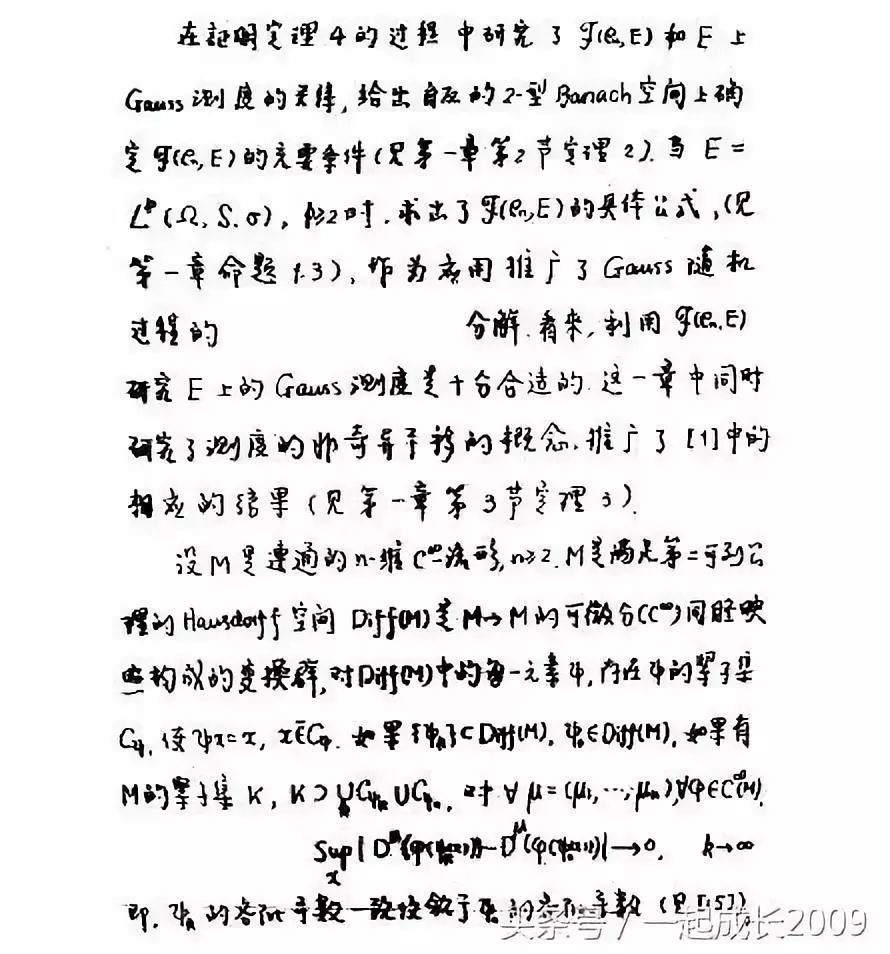 在证明定理4的过程中研究了𝒯(ℓ₂,E)和E上
Gauss测度的关系,给出自反的2-型Banach空间上确
定𝒯(ℓ₂,E)的充要条件(见第一章第2节定理2).当E=
L^p(Ω,S,σ),p≥2时,求出了𝒯(ℓ₂,E)的具体公式,(见
第一章命题1.3),作为应用推广了Gauss随机
过程的 分解.看来,利用𝒯(ℓ₂,E)
研究E上的Gauss测度是十分合适的.这一章中同时
研究了测度的非奇异平移的概念,推广了[1]中的
相应的结果(见第一章第3节定理3).
设M是连通的n-维C^∞流形,n≥2.M是满足第二可列公
理的Hausdorff空间 Diff(M)是M→M的可微分(C^∞)同胚映
照构成的变换群,对Diff(M)中的每一元素ψ,存在ψ的紧子集
C_ψ,使ψx=x, x∈̄C_ψ.如果{ψ_k}⊂Diff(M),ψ₀∈Diff(M),如果有
M的紧子集K,K⊃∪C_ψk∪C_ψ₀,对∀μ=(μ₁,…,μ_n),∀φ∈C^∞(M),
Sup_x|D^μ(φ(ψ_k(x)))-D^μ(φ(ψ₀(x)))|→0, k→∞
即,ψ_k的各阶导数一致收敛于ψ₀的各阶导数(见[15])
头条号/一起成长2009